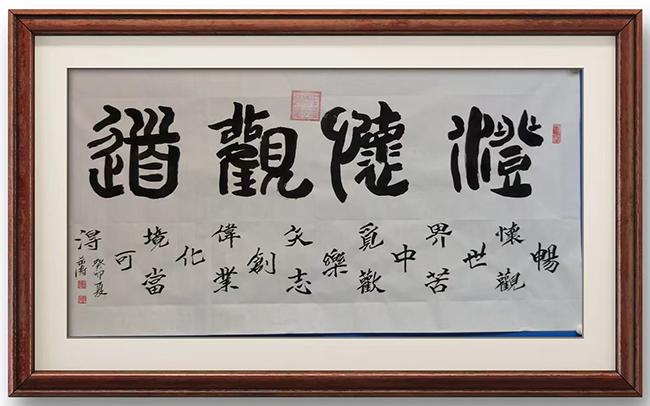 澄懷觀道
暢
懷觀
世
界苦
中
覓歡
樂
志
創
偉業
化
境當
可
得
癸卯夏